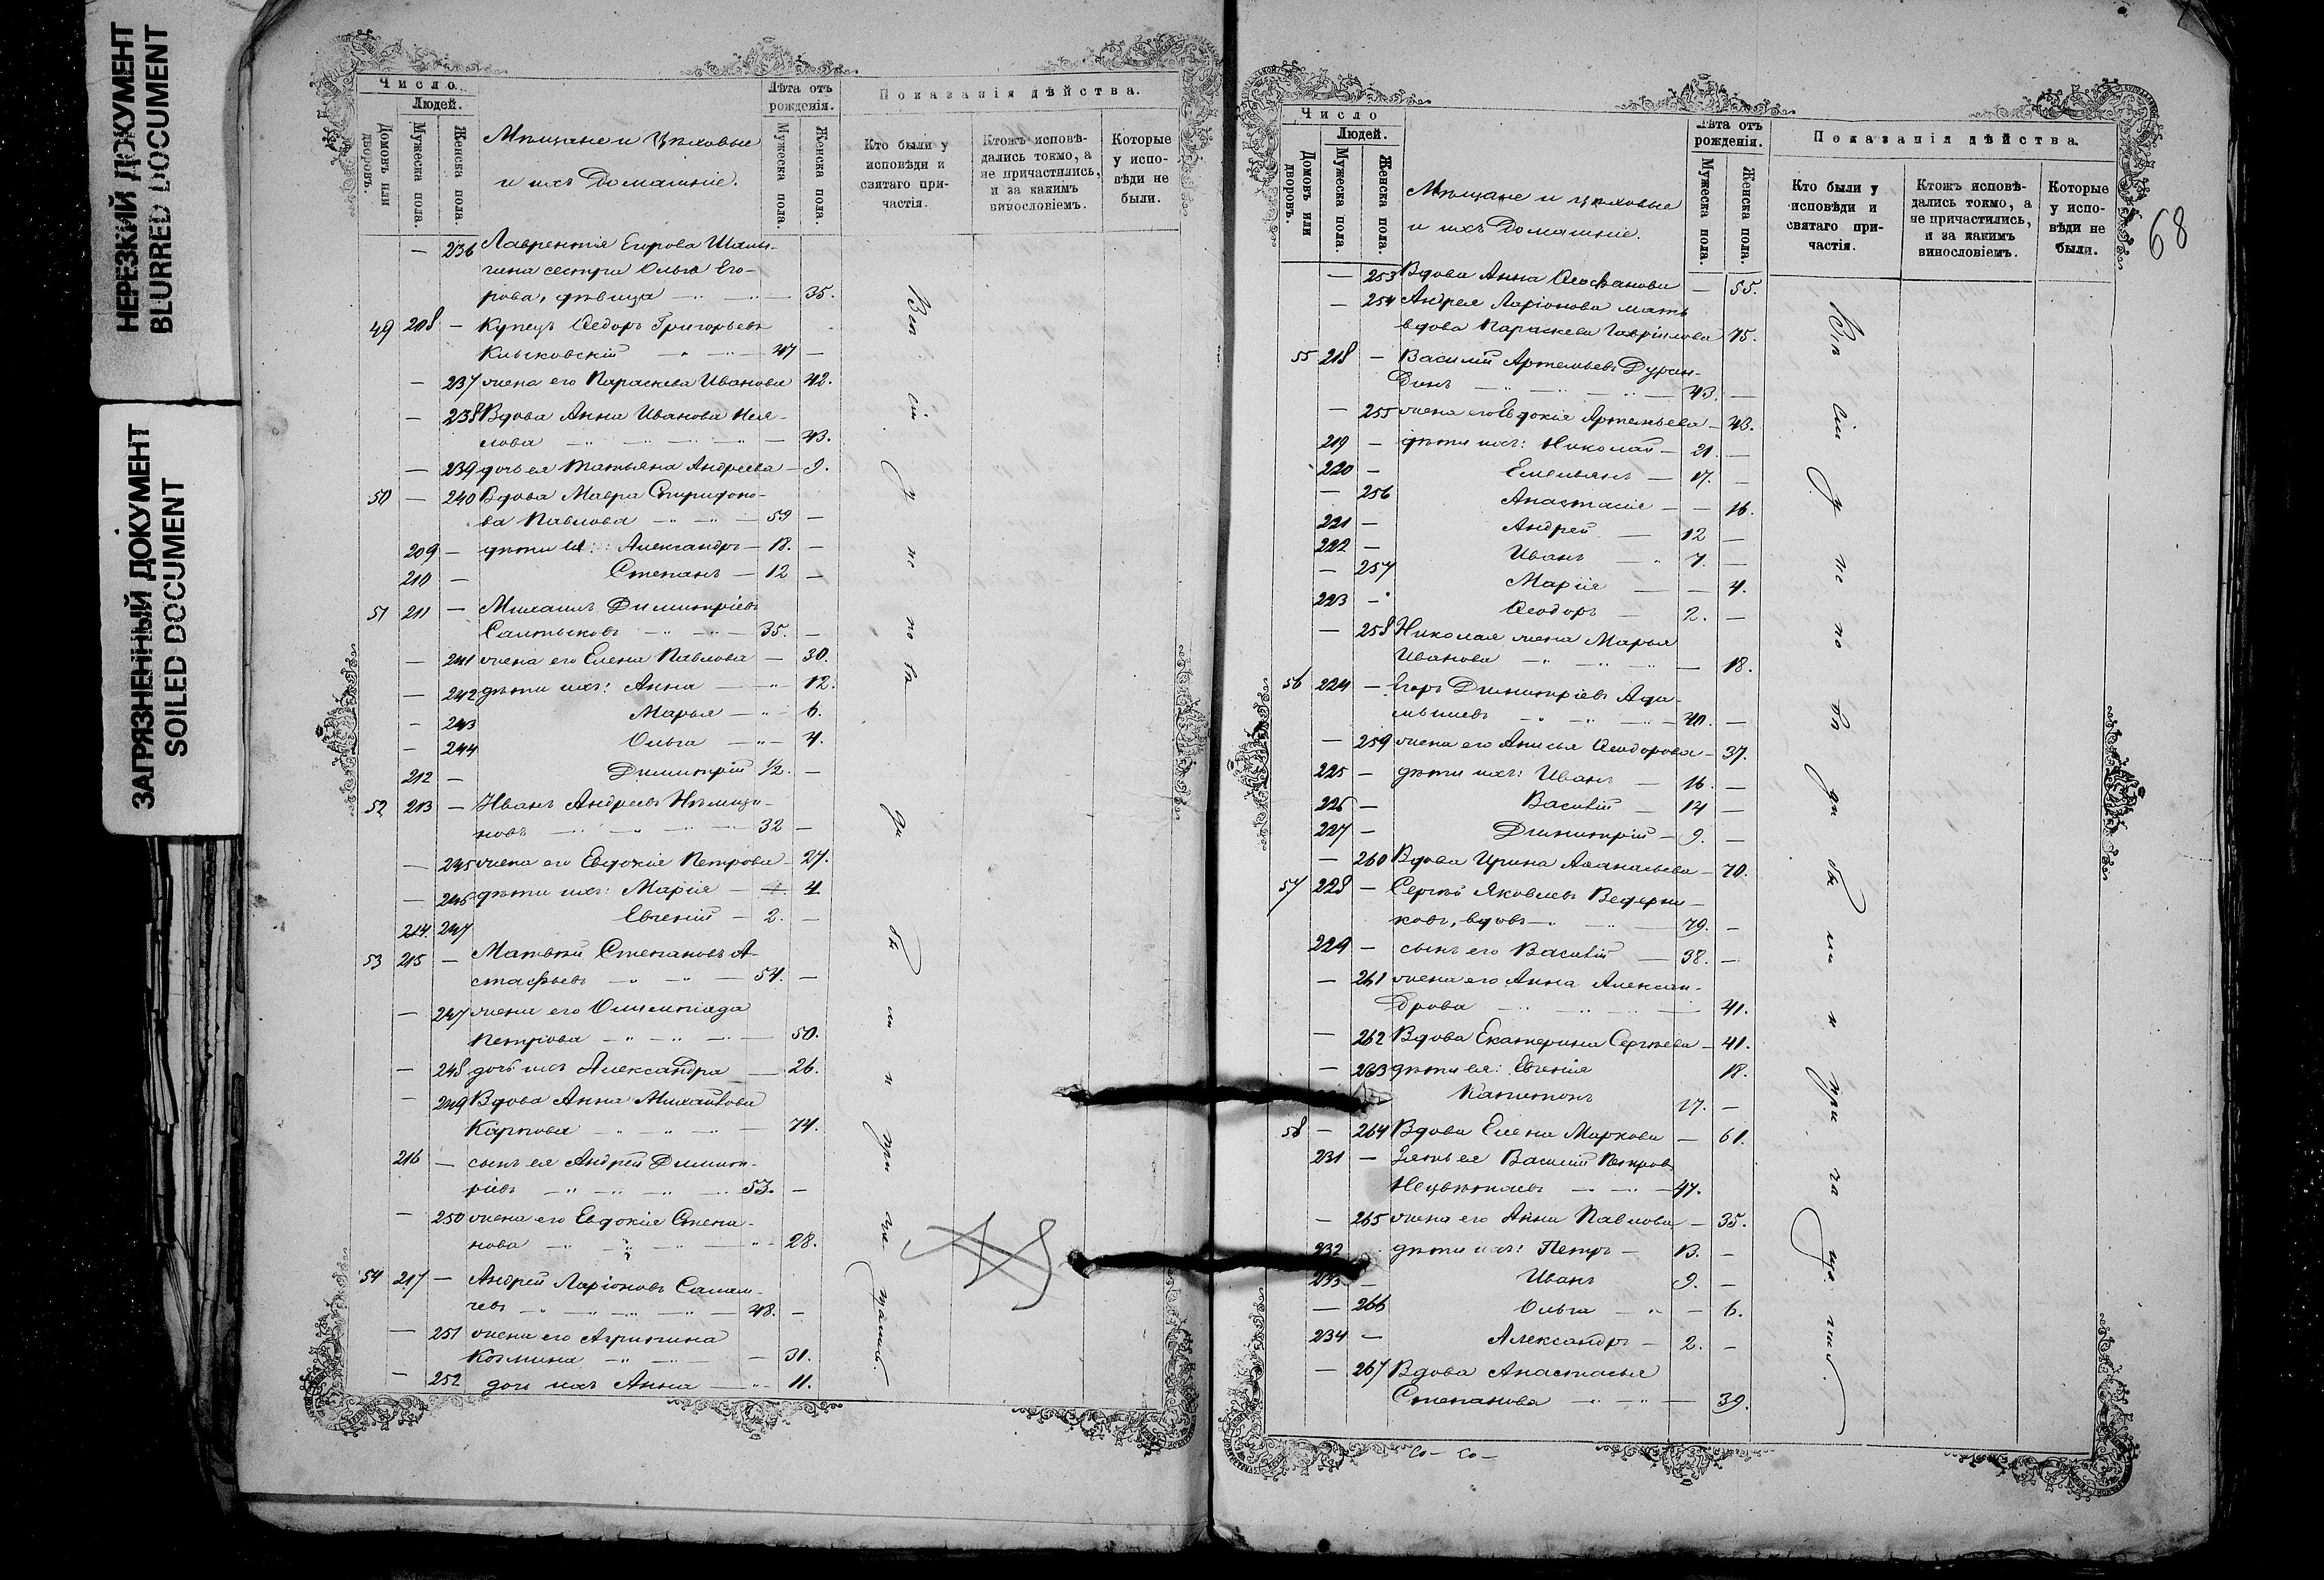 НЕРЕЗКИЙ ДОКУМЕНТ
BLURRED DOCUMENT
ЗАГРЯЗНЕННЫЙ ДОКУМЕНТ
SOILED DOCUMENT
Число.
Людей.
Домовъ или дворовъ.
Мужеска пола.
Женска пола.
Мѣщане и Цѣховые
и ихъ Домашніе.
Лѣта отъ рожденія.
Мужеска пола.
Женска пола.
Показанія дѣйства.
Кто были у исповѣди и святаго причастія.
Ктожъ исповѣдались токмо, а не причастились, и за какимъ винословіемъ.
Которые у исповѣди не были.
— 236 Лаврентія Егорова
сестра Ольга Его-
рова, дѣвица — 35.
49 208 — Купецъ Ѳедоръ Григорьевъ
47 —
— 237 жена его Параскева Иванова 42.
— 238 Вдова Анна Иванова
— 43.
— 239 дочь ея Татьяна Андреева — 9.
50 — 240 Вдова Мавра Спиридоно-
ва Павлова — 59 —
209 — дѣти ея: Александръ — 18. —
210 — Степанъ — 12 —
51 211 — Михаилъ Димитріевъ
Салтыковъ — 35. —
— 241 жена его Елена Павлова — 30.
— 242 дѣти ихъ: Анна — 12.
— 243 Марья — 6.
— 244 Ольга — 4.
212 — Димитрій 1/2. —
52 213 — Иванъ Андреевъ
новъ — 32 —
— 245 жена его Евдокія Петрова — 27.
— 246 дѣти ихъ: Марія — 4
214. 247 Евгений — 2. —
53 215 — Матвѣй Степановъ А-
стафьевъ — 54. —
— 247 жена его Олимпіада
Петрова — 50.
— 248 дочь ихъ Александра — 26.
— 249 Вдова Анна Михайлова
Карпова — 74.
216 — сынъ ея Андрей Димит-
ріевъ — 53. —
— 250 жена его Евдокія Степа-
нова — 28.
54 217 — Андрей Ларіоновъ
чевъ — 48. —
— 251 жена его Агрипина
Козмина — 31.
— 252 дочь ихъ Анна — 11.
Всѣ сіи у исповѣди были и причащались.
68
Число
Людей.
Домовъ или дворовъ.
Мужеска пола.
Женска пола.
Мѣщане и цѣховые
и ихъ Домашніе.
Лѣта отъ рожденія.
Мужеска пола.
Женска пола.
Показанія дѣйства.
Кто были у исповѣди и святаго причастія.
Ктожъ исповѣдались токмо, а не причастились, и за какимъ винословіемъ.
Которые у исповѣди не были.
— 253 Вдова Анна — 55.
— 254 Андрея Ларіонова мать
вдова Параскева Гавріилова 75.
55 218 — Василій Артемьевъ Дуран-
динъ — 43. —
— 255 жена его Евдокія Артемьева — 43.
219 — дѣти ихъ: Николай — 21 —
220 — Емельянъ — 17. —
— 256 Анастасія — 16.
221 — Андрей — 12 —
222 — Иванъ — 7. —
— 257 Марія — 4.
223 — Ѳеодоръ — 2. —
— 258 Николая жена Марья
Иванова — 18.
56 224 — Егоръ Димитріевъ
— 40. —
— 259 жена его Анисья Ѳеодорова — 37.
225 — дѣти ихъ: Иванъ — 16. —
226 — Василій — 14 —
227 — Димитрій — 9. —
— 260 Вдова Ирина Аѳанасьева — 70.
57 228 — Сергѣй Яковлевъ Ведерни-
ковъ, вдовъ — 79. —
229 — сынъ его Василій — 38. —
— 261 жена его Анна Алексан-
дрова — 41.
— 262 Вдова Екатерина Сергѣева — 41.
— 263 дѣти ея: Евгенія 18.
Капитонъ 17. —
58 — 264 Вдова Елена Маркова — 61.
231 — Зять ея Василій Петровъ
Нецвѣтаевъ — 47.
— 265 жена его Анна Павлова — 35.
232 дѣти ихъ: Петръ — 13. —
233 — Иванъ 9. —
— 266 Ольга — 6.
234 — Александръ — 2. —
— 267 Вдова Анастасья
Степанова — 39.
Всѣ сіи у исповѣди были и причащались.